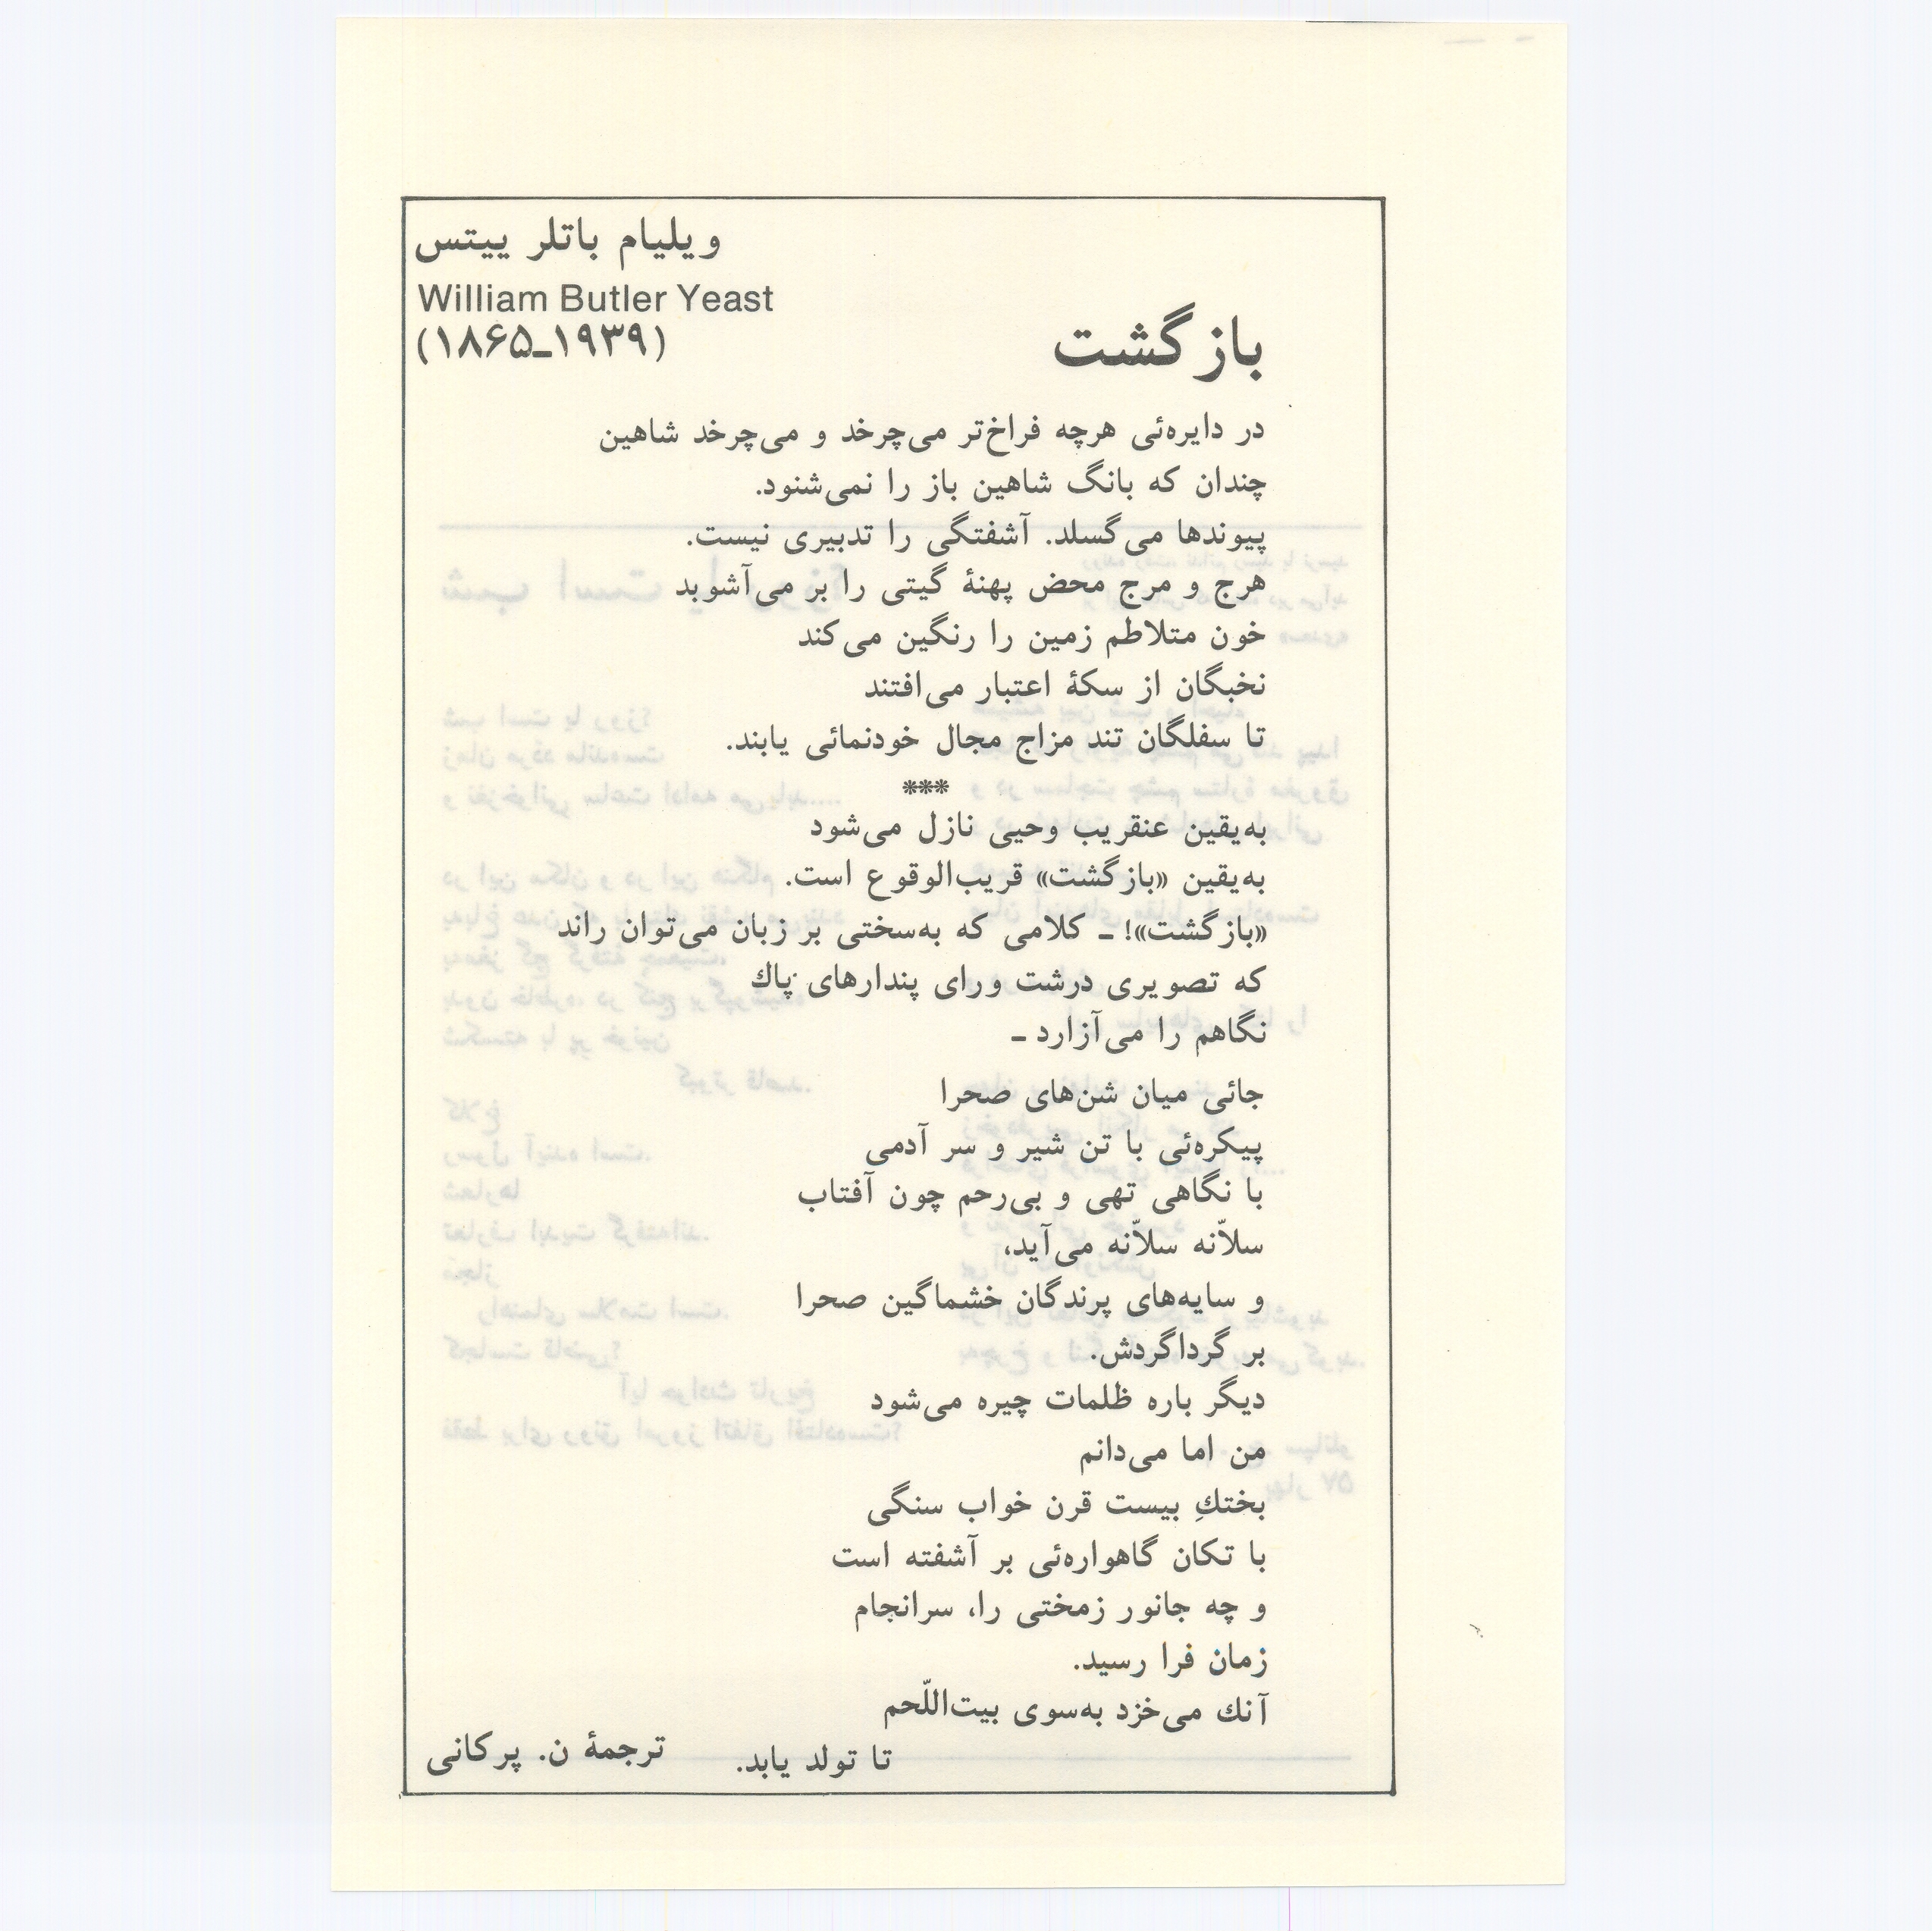 ویلیام باتلر ییتس
William Butler Yeast
(۱۸۶۵ـ۱۹۳۹)
بازگشت
در دایره‌ئی هرچه فراخ‌تر می‌چرخد و می‌چرخد شاهین
چندان که بانگ شاهین باز را نمی‌شنود.
پیوندها می‌گسلد. آشفتگی را تدبیری نیست.
هرج و مرج محض پهنهٔ گیتی را بر می‌آشوبد
خون متلاطم زمین را رنگین می‌کند
نخبگان از سکهٔ اعتبار می‌افتند
تا سفلگان تند مزاج مجال خودنمائی یابند.
***
به‌یقین عنقریب وحیی نازل می‌شود
به‌یقین «بازگشت» قریب‌الوقوع است.
«بازگشت»! ـ کلامی که به‌سختی بر زبان می‌توان راند
که تصویری درشت ورای پندارهای پاك
نگاهم را می‌آزارد ـ
جائی میان شن‌های صحرا
پیکره‌ئی با تن شیر و سر آدمی
با نگاهی تهی و بی‌رحم چون آفتاب
سلاّنه سلاّنه می‌آید،
و سایه‌های پرندگان خشماگین صحرا
بر گرداگردش.
دیگر باره ظلمات چیره می‌شود
من اما می‌دانم
بختكِ بیست قرن خواب سنگی
با تکان گاهواره‌ئی بر آشفته است
و چه جانور زمختی را، سرانجام
زمان فرا رسید.
آنك می‌خزد به‌سوی بیت‌اللّحم
تا تولد یابد.
ترجمهٔ ن. پرکانی